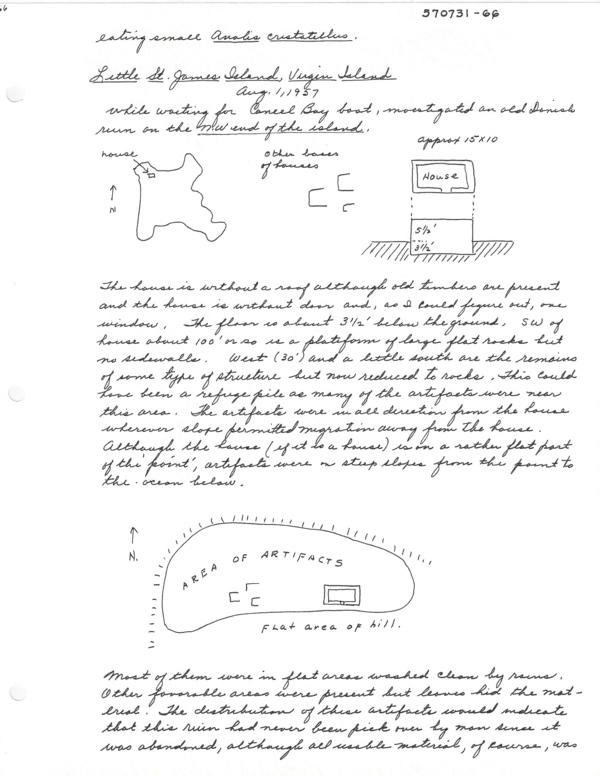 570731-66
66
eating small Anolis cristatellus.
Little St. James Island, Virgin Island
Aug. 1, 1957
While waiting for Caneel Bay boat, investigated an old Danish
ruin on the NW end of the island.
approx 15x10
house
Other bases
of houses
House
N
5½'
3½'
The house is without a roof although old timbers are present
and the house is without door and, as I could figure out, one
window. The floor is about 3½' below the ground. SW of
house about 100' or so is a plateform of large flat rocks but
no sidewalls. West (30') and a little south are the remains
of some type of structure but now reduced to rocks. This could
have been a refuge pile as many of the artifacts were near
this area. The artifacts were in all direction from the house
wherever slope permitted migration away from the house.
Although the house (if it is a house) is on a rather flat part
of the 'point', artifacts were on steep slopes from the point to
the ocean below.
N.
AREA OF ARTIFACTS
Flat area of hill.
Most of them were in flat areas washed clean by rains.
Other favorable areas were present but leaves hid the mat-
erial. The distribution of these artifacts would indicate
that this ruin had never been pick over by man since it
was abandoned, although all usable material, of course, was